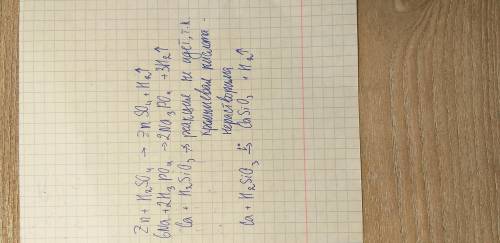 Zn + H₂SO₄ → ZnSO₄ + H₂↑
6Na + 2H₃PO₄ → 2Na₃PO₄ + 3H₂↑
Ca + H₂SiO₃ → реакция не идёт, т.к.
кремниевая кислота -
нерастворима
Ca + H₂SiO₃ → CaSiO₃ + H₂↑